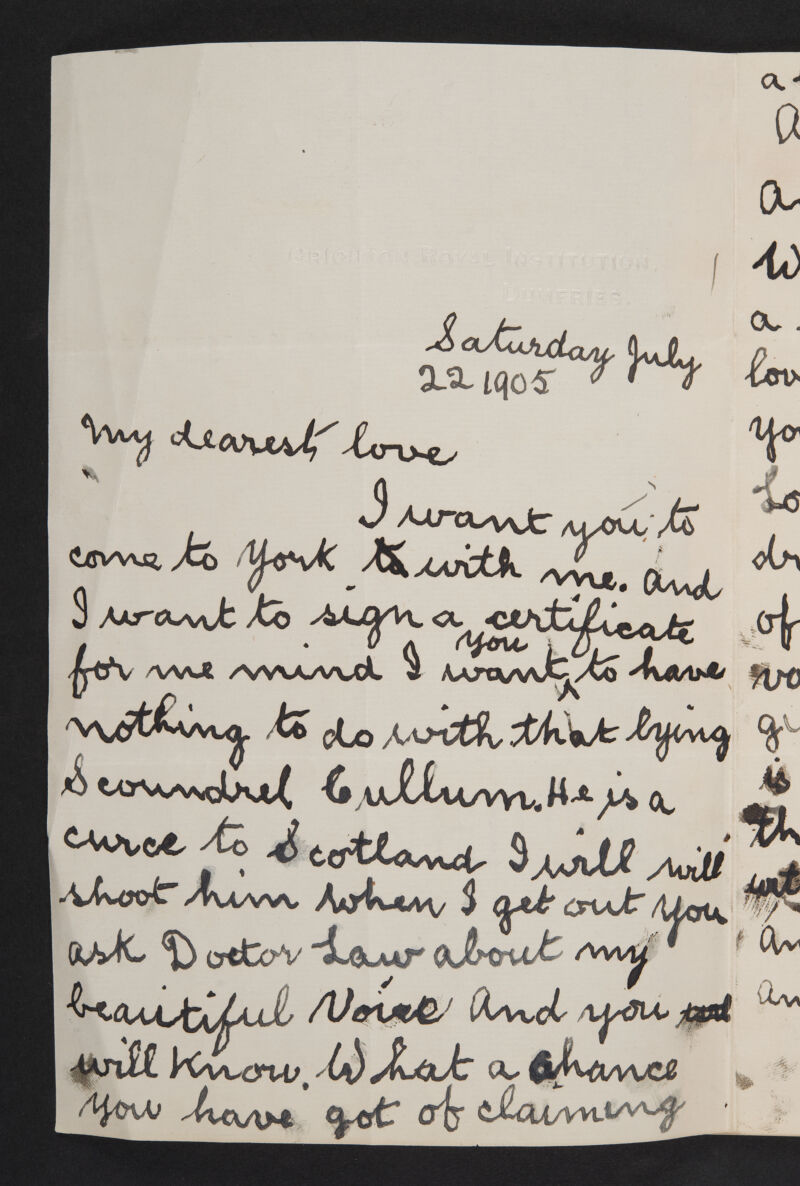 CRICHTON ROYAL INSTITUTION,
DUMFRIES.
Saturday July
22 1905
My dearest love
I want you to
come to York to with me. And
I want to sign a certificate
for me mind I want you to have
nothing to do with that lying
Scoundrel Cullum. He is a
curce to Scotland I will will
shoot him when I get out you
ask Doctor Law about my
beautiful Voice And you
will know. What a chance
you have got of claiming
a
A
W
a
lov
you
Lo
dr
of
vo
is
th
an
an